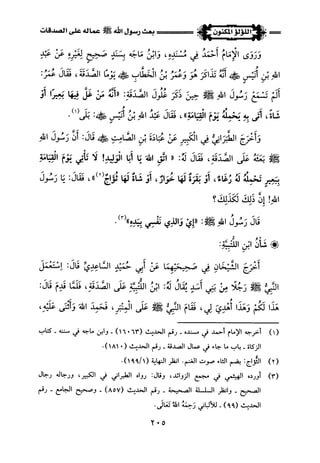 بعث رسول الله ﷺ عماله على الصدقات
اللؤلؤ المكنون
وَرَوَى الْإِمَامُ أَحْمَدُ فِي مُسْنَدِهِ، وَابْنُ مَاجَه بِسَنَدٍ صَحِيحٍ لِغَيْرِهِ عَنْ عَبْدِ
اللهِ بْنِ أُنَيْسٍ ﷺ أَنَّهُ تَذَاكَرَ هُوَ وَعُمَرُ بْنُ الْخَطَّابِ ﷺ يَوْمًا الصَّدَقَةَ، فَقَالَ عُمَرُ:
أَلَمْ تَسْمَعْ رَسُولَ اللهِ ﷺ حِينَ ذَكَرَ غُلُولَ الصَّدَقَةِ: «أَنَّهُ مَنْ غَلَّ مِنْهَا بَعِيرًا أَوْ
شَاةً، أُتِي بِهِ يَحْمِلُهُ يَوْمَ الْقِيَامَةِ»، فَقَالَ عَبْدُ اللهِ بْنُ أُنَيْسٍ: بَلَى(١).
وَأَخْرَجَ الطَّبَرَانِيُّ فِي الْكَبِيرِ عَنْ عُبَادَةَ بْنِ الصَّامِتِ ﷺ قَالَ: أَنَّ رَسُولَ اللهِ
ﷺ بَعَثَهُ عَلَى الصَّدَقَةِ، فَقَالَ لَهُ: «اتَّقِ اللهَ يَا أَبَا الْوَلِيدِ! لَا تَأْتِي يَوْمَ الْقِيَامَةِ
بِبَعِيرٍ تَحْمِلُهُ لَهُ رُغَاءٌ، أَوْ بَقَرَةٌ لَهَا خُوَارٌ، أَوْ شَاةٌ لَهَا ثُؤَاجٌ(٢)»، فَقَالَ: يَا رَسُولَ
اللهِ! إِنَّ ذَلِكَ لَكَذَلِكَ؟
قَالَ رَسُولُ اللهِ ﷺ: «إِيْ وَالذِي نَفْسِي بِيَدِهِ»(٣).
شَأْنُ ابْنِ اللُّتْبِيَّةِ:
أَخْرَجَ الشَّيْخَانِ فِي صَحِيحَيْهِمَا عَنْ أَبِي حُمَيْدٍ السَّاعِدِيِّ قَالَ: اسْتَعْمَلَ
النَّبِيُّ ﷺ رَجُلًا مِنْ بَنِي أَسَدٍ يُقَالُ لَهُ: ابْنُ اللُّتْبِيَّةِ عَلَى الصَّدَقَةِ، فَلَمَّا قَدِمَ قَالَ:
هَذَا لَكُمْ وَهَذَا أُهْدِيَ لِي، فَقَامَ النَّبِيُّ ﷺ عَلَى الْمِنْبَرِ، فَحَمِدَ اللهَ وَأَثْنَى عَلَيْهِ،
(١) أخرجه الإمام أحمد في مسنده ـ رقم الحديث (١٦٠٦٣) ـ وابن ماجه في سننه ـ كتاب
الزكاة ـ باب ما جاء في عمال الصدقة ـ رقم الحديث (١٨١٠).
(٢) الثُّؤَاجُ: بضم الثاء صوت الغنم. انظر النهاية (١٩٩/١).
(٣) أورده الهيثمي في مجمع الزوائد، وقال: رواه الطبراني في الكبير، ورجاله رجال
الصحيح ـ وانظر السلسلة الصحيحة ـ رقم الحديث (٨٥٧) ـ وصحيح الجامع ـ رقم
الحديث (٩٩) ـ للألباني رَحِمَهُ اللهُ تَعَالَى.
٢٠٥